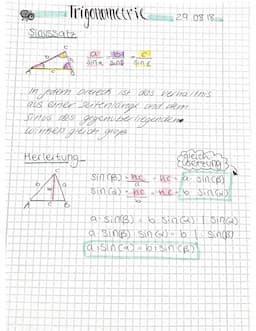 Trigonometrie 29.08.18
Sinussatz
a/sinα = b/sinβ = c/sinγ
In jedem Dreieck ist das Verhältnis
aus einer Seitenlänge und dem
Sinus des gegenüberliegenden
Winkels gleich groß
Herleitung
gleich
setzung
sin(β) = hc/a → hc = a · sin(β)
sin(α) = hc/b → hc = b · sin(α)
a · sin(β) = b · sin(α) | : sin(α)
a · sin(β) : sin(α) = b | : sin(β)
a : sin(α) = b : sin(β)